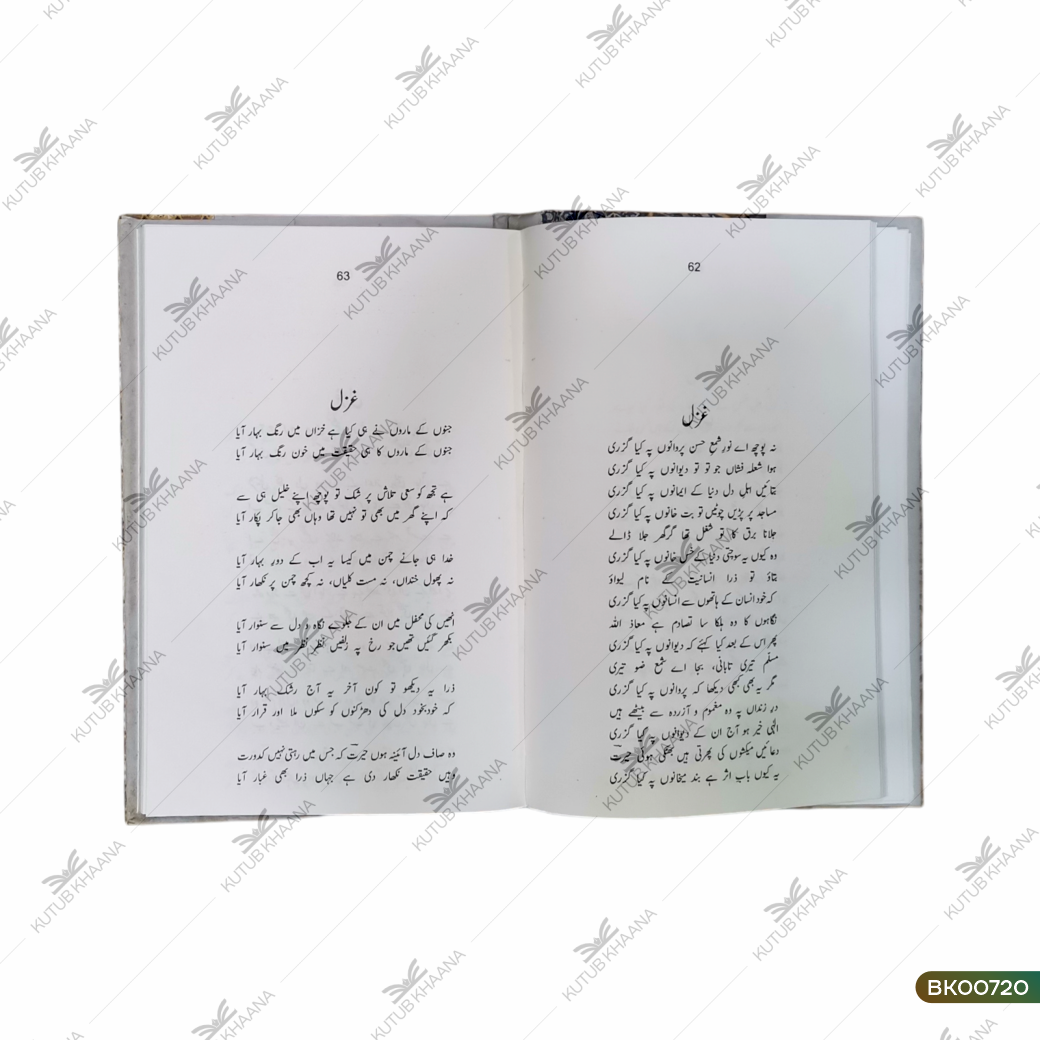 62
غزل
نہ پوچھ اے نورِ شمعِ حسن پروانوں پہ کیا گزری
ہوا شعلہ فشاں جو تو تو دیوانوں پہ کیا گزری
بتائیں اہلِ دل دنیا کے ایمانوں پہ کیا گزری
مساجد پر پڑیں چوٹیں تو بت خانوں پہ کیا گزری
جلانا برق کا تو شغل تھا گرگھر جلا ڈالے
وہ کیوں یہ سوچتی دنیا کے خس خانوں پہ کیا گزری
بتاؤ تو ذرا انسانیت کے نام لیواؤ
کہ خود انسان کے ہاتھوں سے انسانوں پہ کیا گزری
نگاہوں کا وہ ہلکا سا تصادم ہے معاذ اللہ
پھر اس کے بعد کیا کہئے کہ دیوانوں پہ کیا گزری
مسلّم تیری تابانی، بجا اے شمع ضو تیری
مگر یہ بھی کبھی دیکھا کہ پروانوں پہ کیا گزری
درِ زنداں پہ وہ مغموم و آزردہ سے بیٹھے ہیں
الٰہی خیر ہو آج ان کے دیوانوں پہ کیا گزری
دعائیں میکشوں کی پھرتی ہیں بھٹکی ہوئی حیرتؔ
یہ کیوں باب اثر ہے بند میخانوں پہ کیا گزری
63
غزل
جنوں کے ماروں نے ہی کیا ہے خزاں میں رنگ بہار آیا
جنوں کے ماروں کا ہی حقیقت میں خون رنگ بہار آیا
ہے تجھ کو سعی تلاش پر شک تو پوچھ اپنے خلیل ہی سے
کہ اپنے گھر میں بھی تو نہیں تھا وہاں بھی جا کر پکار آیا
خدا ہی جانے چمن میں کیسا یہ اب کے دورِ بہار آیا
نہ پھول خنداں، نہ مست کلیاں، نہ کچھ چمن پر نکھار آیا
انھیں کی محفل میں ان کے جلوے نگاہ و دل سے سنوار آیا
بکھر گئیں تھیں جو رخ پہ زلفیں نظر نظر میں سنوار آیا
ذرا یہ دیکھو تو کون آخر یہ آج رشک بہار آیا
کہ خودبخود دل کی دھڑکنوں کو سکوں ملا اور قرار آیا
وہ صاف دل آئینہ ہوں حیرتؔ کہ جس میں رہتی نہیں کدورت
وہیں حقیقت نکھار دی ہے جہاں ذرا بھی غبار آیا
KUTUB KHAANA
BK00720